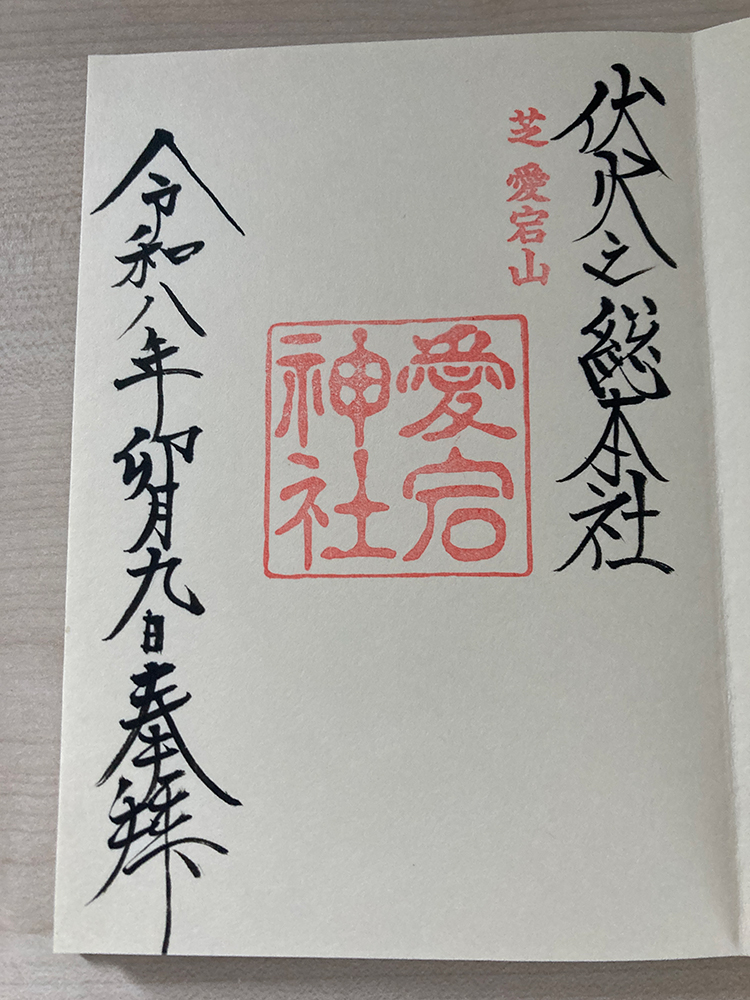 伏火之総本社
芝 愛宕山
愛宕
神社
令和八年卯月九日奉拝